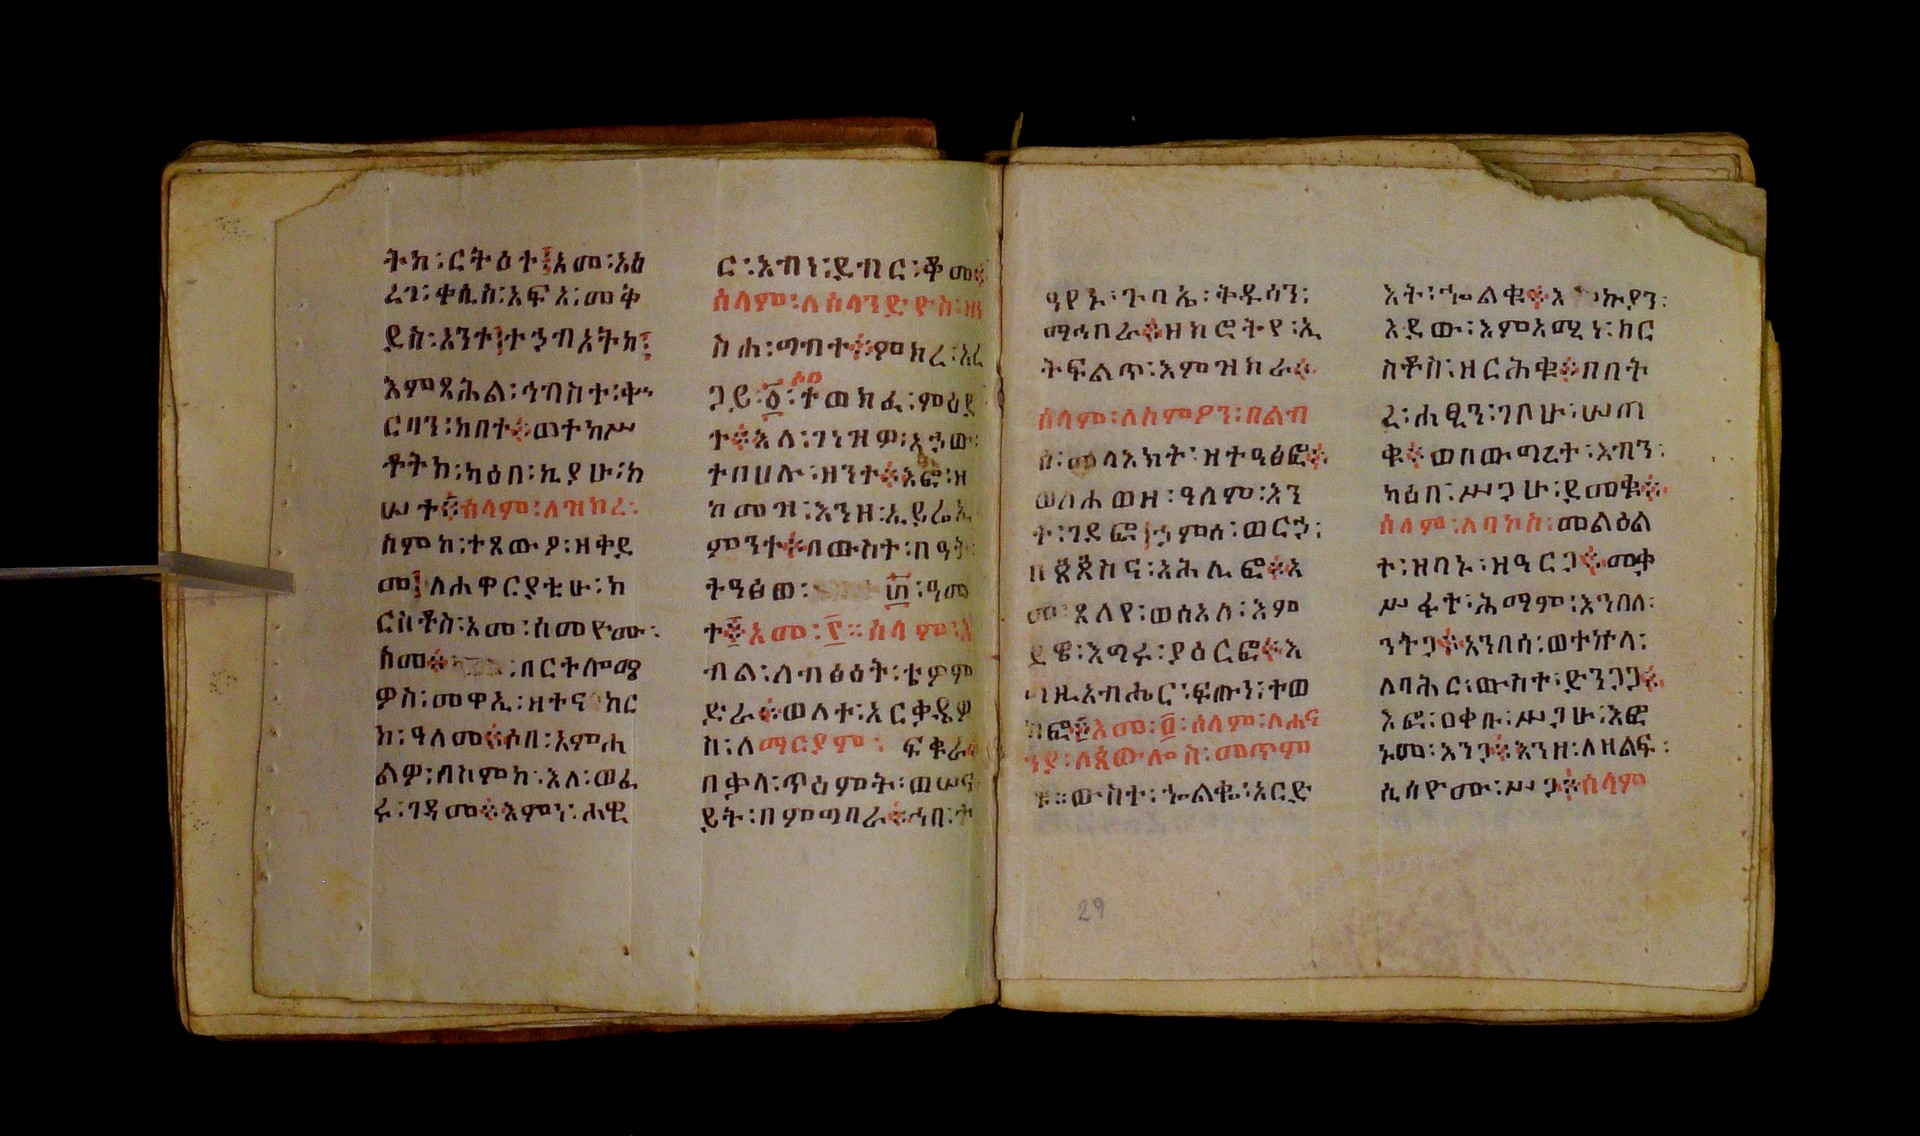 ትከ፡ርትዕተ፤አመ፡አዕ
ረገ፡ቀሲስ፡አፍአ፡መቅ
ደስ፡አንተ፤ተኃብአትከ፤
እምጻሕል፡ኅብስተ፡ቍ
ርባን፡ከበተ፨ወተከሥ
ቶትከ፡ካዕበ፡ኪያሁ፡ከ
ሠተ፨ሰላም፡ለዝክረ፡
ስምከ፡ተጸውዖ፡ዘቀደ
መ፤ለሐዋርያቲሁ፡ክ
ርስቶስ፡አመ፡ሰመዮሙ፡
ስመ፨ ፡በርተሎሜ
ዎስ፡መዋኢ፡ዘተና ከር
ከ፡ዓለመ፨ሶበ፡አምሐ
ልዎ፡በስምከ፡እለ፡ወፈ
ሩ፡ገዳመ፨እምነ፡ሐዊ
ር፡እብነ፡ይብር፡ቆመ፨
ሰላም፡ለሰላንድዮስ፡
ስሐ፡ጣብተ፨ምክረ፡
ጋይ፡ ተወክፈ፡ምዕደ
ተ፨እለ፡ገነዝዎ፡አኃው፡
ተበሀሉ፡ዘንተ፨እፎ፡ዘ
ከመዝ፡እንዘ፡ኢይሬኢ
ምንተ፨በውስተ፡በዓት፡
ትዓፅወ፡ ፡ዓመ
ተ፨አመ፡ ።ሰላም፡እ
ብል፡ለብፅዕት፡ቴዎም
ድራ፨ወለተ፡አርቃዴዎ
ስ፡ለማርያም፡ ፍቁራ፨
በቃለ፡ጥዕምት፡ወሠና
ይት፡በምግባራ፨ኀበ፡ተ
ዓየኑ፡ጉባኤ፡ቅዱሳን፡
ማኅበራ፨ዘክሮትየ፡ኢ
ትፍልጥ፡እምዝክራ፨
ሰላም፡ለስምዖን፡በልብ
ሰ፡መላእክት፡ዘተዓፅፎ፨
ወሰሐወዘ፡ዓለም፡እን
ተ፡ገደፎ፤ኃምሰ፡ወርኃ፡
በጰጰስና፡አሕሊፎ፨አ
መ፡ጸለየ፡ወሰአለ፡እም
ደዌ፡እግሩ፡ያዕርፎ፨እ
ግዚአብሔር፡ፍጡነ፡ተወ
ክፎ፨አመ፡፬፡ሰላም፡ለሐና
ንያ፡ለጳውሎስ፡መጥም
ቁ።ውስተ፡ኈልቈ፡አርድ
እት፡ኈልቁ፨እ ኩያን፡
እደው፡እምአሚነ፡ክር
ስቶስ፡ዘርሕቁ፨በበት
ረ፡ሐፂን፡ገቦሁ፡ሠጠ
ቁ፨ወበውግረት፡እብን፡
ካዕበ፡ሥጋሁ፡ደመቁ፨
ሰላም፡ለባኮስ፡መልዕል
ተ፡ዘባኑ፡ዘዓርጋ፨መቃ
ሥፋቲ፡ሕማም፡እንበለ፡
ንትጋ፨አንበሰ፡ወተኵላ፡
ለባሕር፡ውስተ፡ድንጋጋ፨
እፎ፡ዐቀቡ፡ሥጋሁ፡እፎ
ኑመ፡እንጋ፨እንዘ፡ለዘልፍ፡
ሲሳዮሙ፡ሥጋ፨ሰላም
29